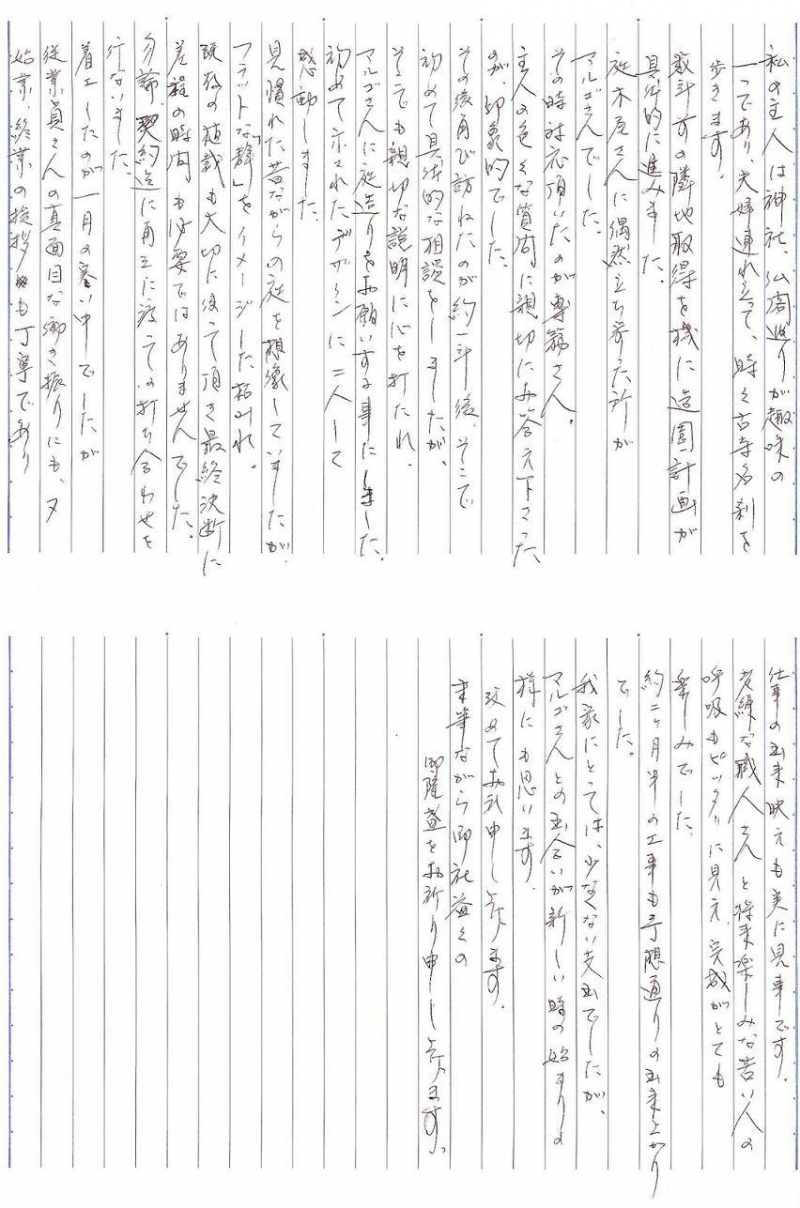 私の主人は神社、仏閣巡りが趣味の
一つであり、夫婦連れ立って、時々古寺名刹を
歩きます。
数年前の隣地取得を機に造園計画が
具体的に進みました。
庭木屋さんに偶然立ち寄った所が
マルゴさんでした。
その時対応頂いたのが専務さん。
主人の色々な質問に親切にお答え下さった
のが、印象的でした。
その後再び訪れたのが約一年後、そこで
初めて具体的な相談をしましたが、
そこでも親切な説明に心を打たれ、
マルゴさんに庭造りをお願いする事にしました。
初めて示されたデザインに二人して
感動しました。
見慣れた昔ながらの庭を想像していましたが、
フラットな「静」をイメージした枯山水。
既存の植栽も大切に使って頂き最終決断に
差程の時間も必要ではありませんでした。
勿論、契約迄に再三に渡っての打ち合わせを
行ないました。
着工したのが一月の寒い中でしたが
従業員さんの真面目な働き振りにも、又
始業、終業の挨拶も丁寧であり
仕事の出来映えも実に見事です。
老練な職人さんと将来楽しみな若い人の
呼吸もピッタリに見え、完成がとても
楽しみでした。
約二ヶ月半の工事も予想通りの出来上がり
でした。
我家にとっては、少なくない支出でしたが、
マルゴさんとの出会いが新しい時の始まりの
様にも思います。
改めてお礼申し上げます。
末筆ながら御社益々の
御隆盛をお祈り申し上げます。